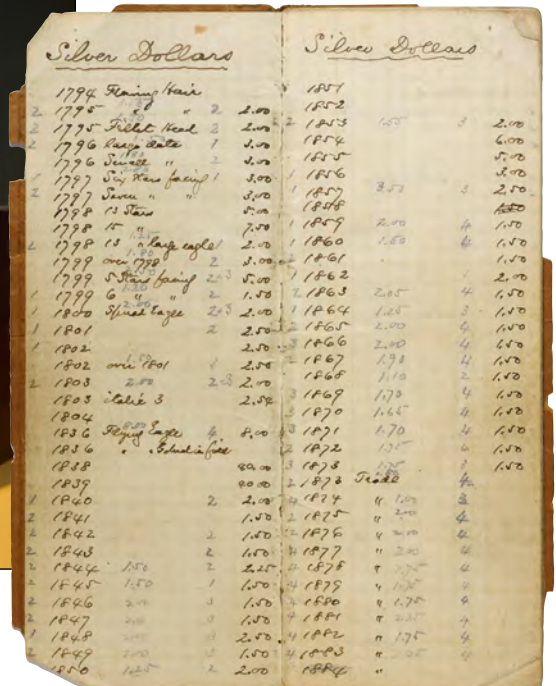 Silver Dollars
1794 Flowing Hair
2 1795 " " 2 2.00
2 1795 Fillet Head 2 2.00
2 1796 large date 1 3.00
1796 Small " 2 3.00
1 1797 Six Stars facing 1 3.00
2 1797 Seven " " 3.00
1798 13 Stars 5.00
1798 15 " 7.50
2 1798 13 " large eagle 1 2.00
1799 over 1798 2 3.00
1799 5 Stars facing 2-3 5.00
1 1799 6 " " 2 1.50
1 1800 Spread Eagle 2-3 2.00
1 1801 2 2.50
1 1802 2.50
1802 over 1801 2.50
2 1803 2.00 2-3 2.00
1803 italic 3 2.50
1804
1836 Flying Eagle 4 8.00
1836 "
1838 80.00
1839 40.00
1 1840 2 2.00
2 1841 1.50
2 1842 2 1.50
2 1843 2 1.50
2 1844 1.50 2 2.25
2 1845 1.50 1 1.50
2 1846 2.00 3 1.50
2 1847 2.00 3 1.50
1 1848 3 2.50
2 1849 3 1.50
1850 1.25 2 2.00
Silver Dollars
1851
1852
2 1853 1.55 3 2.00
1854 6.00
1855 5.00
1 1856 3.00
1 1857 3.50 3 2.50
1858
1 1859 2.00 4 1.50
1 1860 1.50 4 1.50
2 1861 1.50
1 1862 1 2.00
2 1863 2.05 4 1.50
1 1864 1.25 3 1.50
2 1865 2.00 4 1.50
3 1866 2.00 4 1.50
2 1867 1.90 4 1.50
1868 1.10 2 1.50
3 1869 1.70 4 1.50
3 1870 1.65 4 1.50
3 1871 1.70 4 1.50
2 1872 1.75 1.50
3 1873 1.75 3 1.50
2 1873 Trade 4
4 1874 " 1.00 3
2 1875 " 2.00 4
2 1876 " 2.00 4
4 1877 " 2.00 4
4 1878 " 1.75 4
4 1879 " 1.75 4
4 1880 " 1.75 4
4 1881 " 4
4 1882 " 1.75 4
4 1883 " 4
1884 "